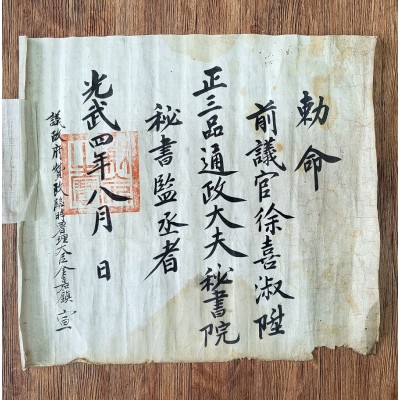 勅命
前議官徐喜淑陞
正三品通政大夫秘書院
秘書監丞者
光武四年八月 日
議政府贊政臨時署理大臣 金嘉鎭 宣